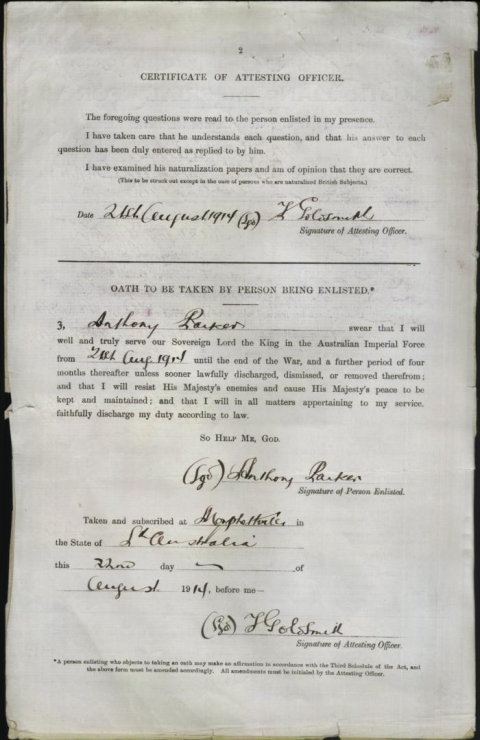 2
CERTIFICATE OF ATTESTING OFFICER.
The foregoing questions were read to the person enlisted in my presence.
I have taken care that he understands each question, and that his answer to each
question has been duly entered as replied to by him.
I have examined his naturalization papers and am of opinion that they are correct.
(This to be struck out except in the case of persons who are naturalized British Subjects.)
Date August 1914 (Sgd) F Goldsmith
Signature of Attesting Officer.
OATH TO BE TAKEN BY PERSON BEING ENLISTED.*
3, Anthony Parker swear that I will
well and truly serve our Sovereign Lord the King in the Australian Imperial Force
from Aug 1914 until the end of the War, and a further period of four
months thereafter unless sooner lawfully discharged, dismissed, or removed therefrom;
and that I will resist His Majesty's enemies and cause His Majesty's peace to be
kept and maintained; and that I will in all matters appertaining to my service.
faithfully discharge my duty according to law.
SO HELP ME, GOD.
(Sgd) Anthony Parker
Signature of Person Enlisted.
Taken and subscribed at Morphettville in
the State of Sth Australia
this day of
August 1914, before me—
(Sgd) F Goldsmith
Signature of Attesting Officer.
*A person enlisting who objects to taking an oath may make an affirmation in accordance with the Third Schedule of the Act, and
the above form must be amended accordingly. All amendments must be initialed by the Attesting Officer.